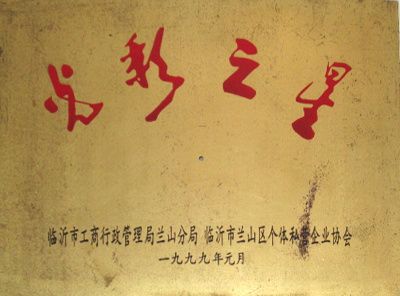 光彩之星
临沂市工商行政管理局兰山分局 临沂市兰山区个体私营企业协会
一九九九年元月